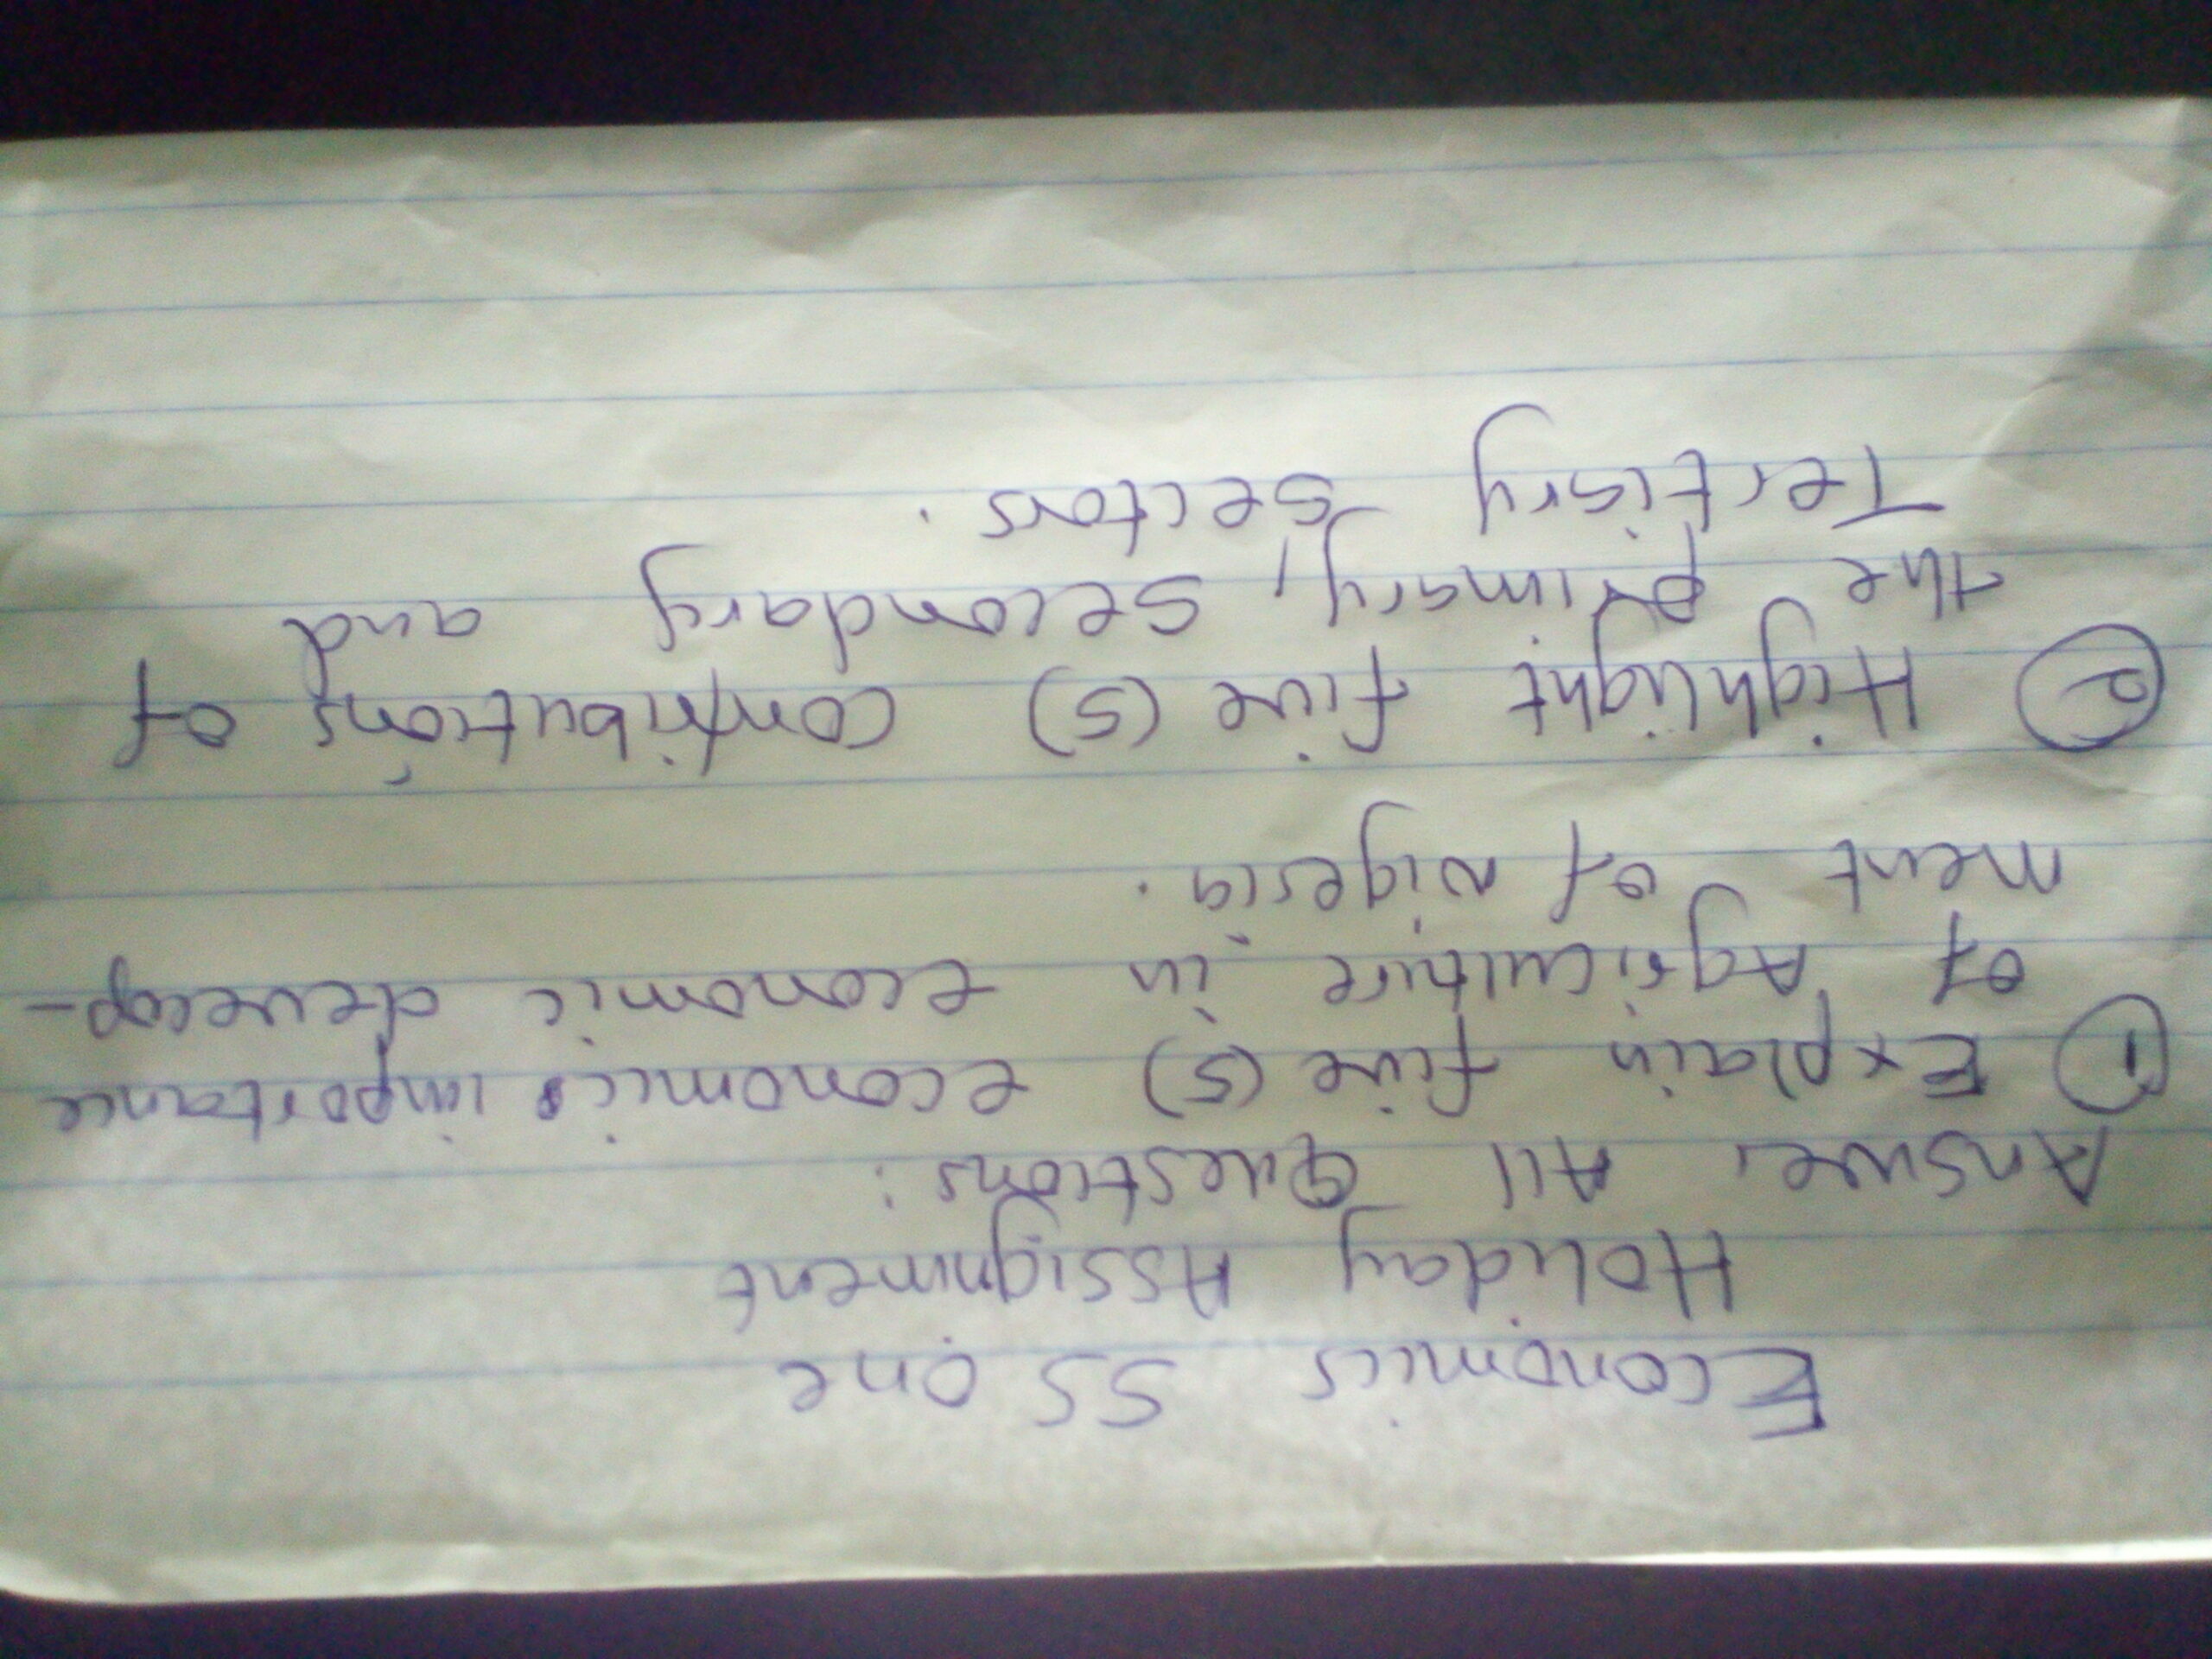 Economics SS one
Holiday Assignment
Answer All Questions:
① Explain five (5) economics importance
of Agriculture in economic develop-
ment of nigeria.
② Highlight five (5) contributions of
the primary, secondary and
Tertiary sectors.